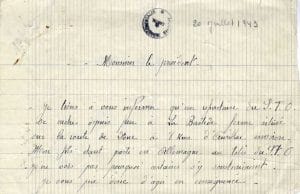 20 juillet 1943
Monsieur le président.
Je tiens a vous informer qu'un réfractaire du S.T.O
se cache depuis peu a La Bastide ferme située
sur la route de à 4 Kms d' environ.
Mon fils étant parti en Allemagne au titre du STO
je ne vois pas pourquoi certains s'y soustrairaient.
je vous prie d'agir en conséquence.